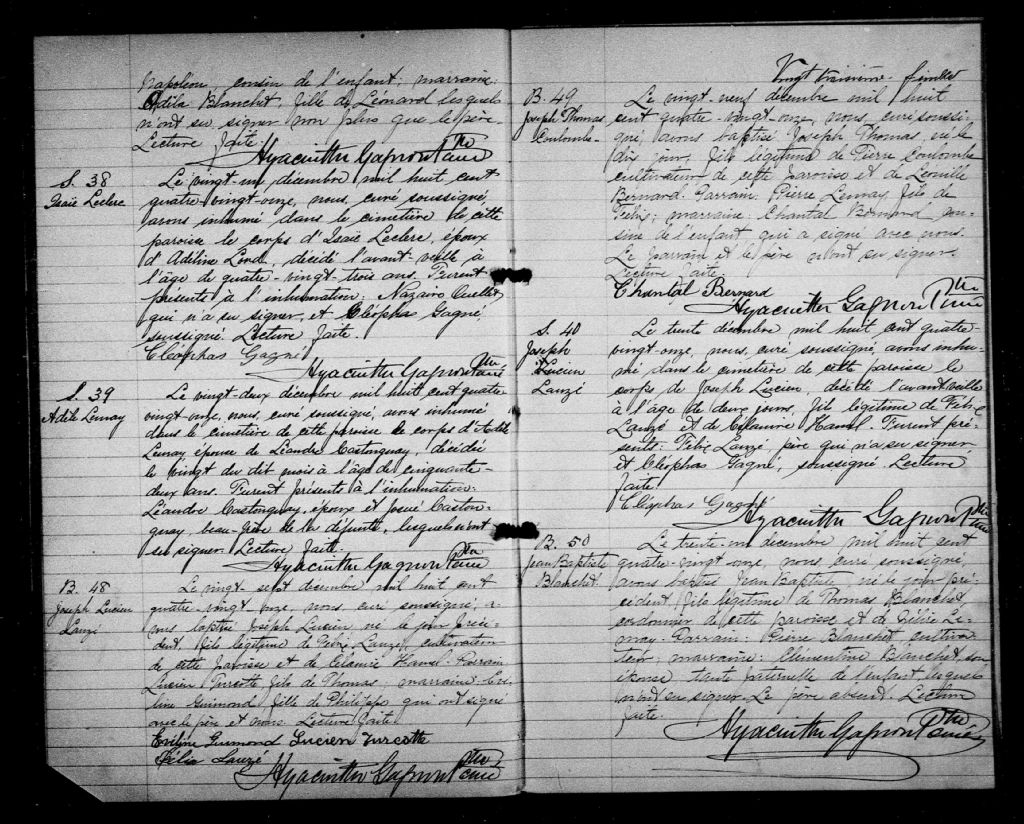 Napoléon cousin de l'enfant; marraine:
Adila Blanchet, fille de Léonard lesquels
n'ont su signer non plus que le père.
Lecture faite.
Hyacinthe Gagnon Ptre curé
S. 38
Isaïe Leclerc
Le vingt-un décembre mil huit cent
quatre-vingt-onze, nous, curé soussigné,
avons inhumé dans le cimetière de cette
paroisse le corps d'Isaïe Leclerc, époux
d'Adéline Lord, décédé l'avant-veille à
l'âge de quatre-vingt-trois ans. Furent
présents à l'inhumation: Nazaire Ouellet
qui n'a su signer, et Cléophas Gagné,
soussigné. Lecture faite.
Cléophas Gagné
Hyacinthe Gagnon Ptre curé
S. 39
Adèle Lemay
Le vingt-deux décembre mil huit cent quatre
vingt-onze, nous, curé soussigné, avons inhumé
dans le cimetière de cette paroisse le corps d'Adèle
Lemay épouse de Léandre Castonguay, décédée
le vingt du dit mois à l'âge de cinquante-
deux ans. Furent présents à l'inhumation:
Léandre Castonguay, époux et Josué Caston-
guay, beau-frère de la défunte, lesquels n'ont
su signer. Lecture faite.
Hyacinthe Gagnon Ptre curé
B. 48
Joseph Lucien
Lauzé
Le vingt-sept decembre mil huit cent
quatre-vingt onze, nous curé soussigné, a-
vons baptisé Joseph Lucien né le jour précé-
dent, fils légitime de Félix Lauzé, cultivateur
de cette paroisse et de Hamel. Parrain
Lucien Turcotte fils de Thomas; marraine: Evé-
line Guimond fille de Philippe qui ont signé
avec le père et nous. Lecture faite
Eveline Guimond Lucien Turcotte
Félix Lauzé
Hyacinthe Gagnon Ptre curé
Vingt troisième feuillet
B. 49
Joseph Thomas
Coulombe
Le vingt-neuf décembre mil huit
cent quatre-vingt-onze, nous, curé soussi-
gné, avons baptisé Joseph Thomas, né le
dit jour, fils légitime de Pierre Coulombe
cultivateur de cette paroisse et de Léonille
Bernard. Parrain: Pierre Lemay, fils de
Félix; marraine: Chantal Bernard cou-
sine de l'enfant qui a signé avec nous.
Le parrain et le père n'ont su signer.
Lecture faite.
Chantal Bernard
Hyacinthe Gagnon Ptre curé
S. 40
Joseph
Lucien
Lauzé
Le trente décembre mil huit cent quatre-
vingt-onze, nous, curé soussigné, avons inhu-
mé dans le cimetière de cette paroisse le
corps de Joseph Lucien, décédé l'avant-veille
à l'âge de deux jours, fils légitime de Félix
Lauzé et de Hamel. Furent pré-
sents: Félix Lauzé père qui n'a su signer,
et Cléophas Gagné, soussigné. Lecture
faite.
Cléophas Gagné
Hyacinthe Gagnon Ptre curé
B. 50
Jean Baptiste
Blanchet
Le trente-un decembre mil huit cent
quatre-vingt onze, nous curé soussigné,
avons baptisé Jean Baptiste né le jour pré-
cédent, fils légitime de Thomas Blanchet
cordonnier de cette paroisse et de Délie Le-
may. Parrain: Pierre Blanchet cultiva-
teur; marraine: Clémentine Blanchet, son
épouse tante paternelle de l'enfant, lesquels
n'ont su signer. Le père absent. Lecture
faite.
Hyacinthe Gagnon Ptre curé